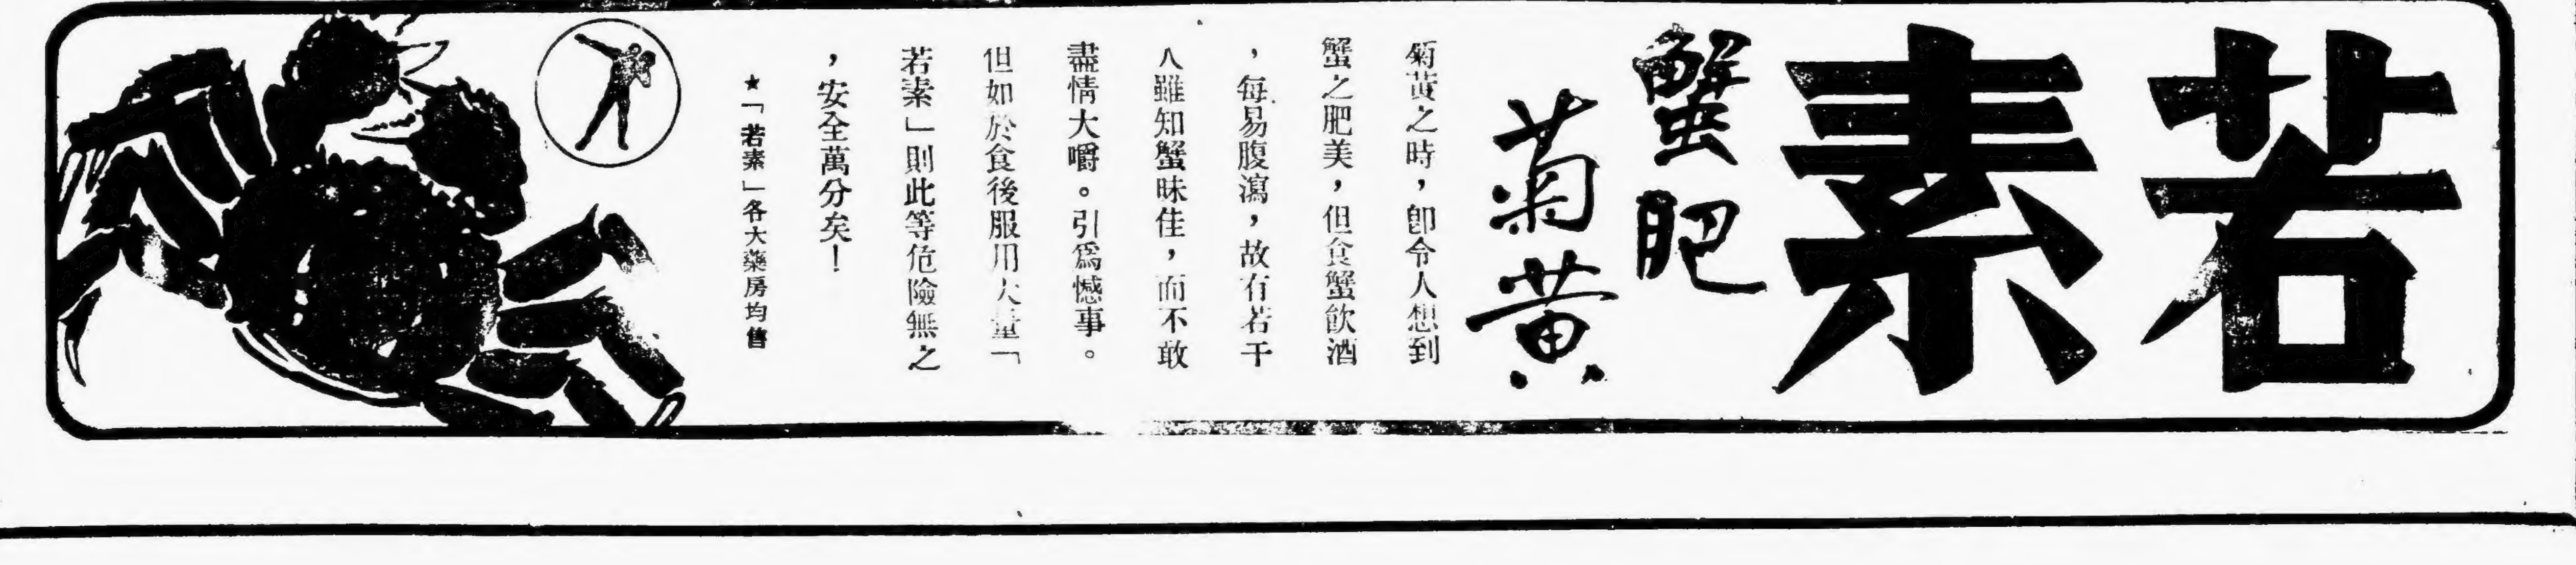 若素
蟹肥
菊黃
菊黃之時，卽令人想到
蟹之肥美，但食蟹飲酒
，每易腹瀉，故有若干
人雖知蟹味佳，而不敢
盡情大嚼。引爲憾事。
但如於食後服用大量「
若素」則此等危險無之
，安全萬分矣！
★「若素」各大藥房均售